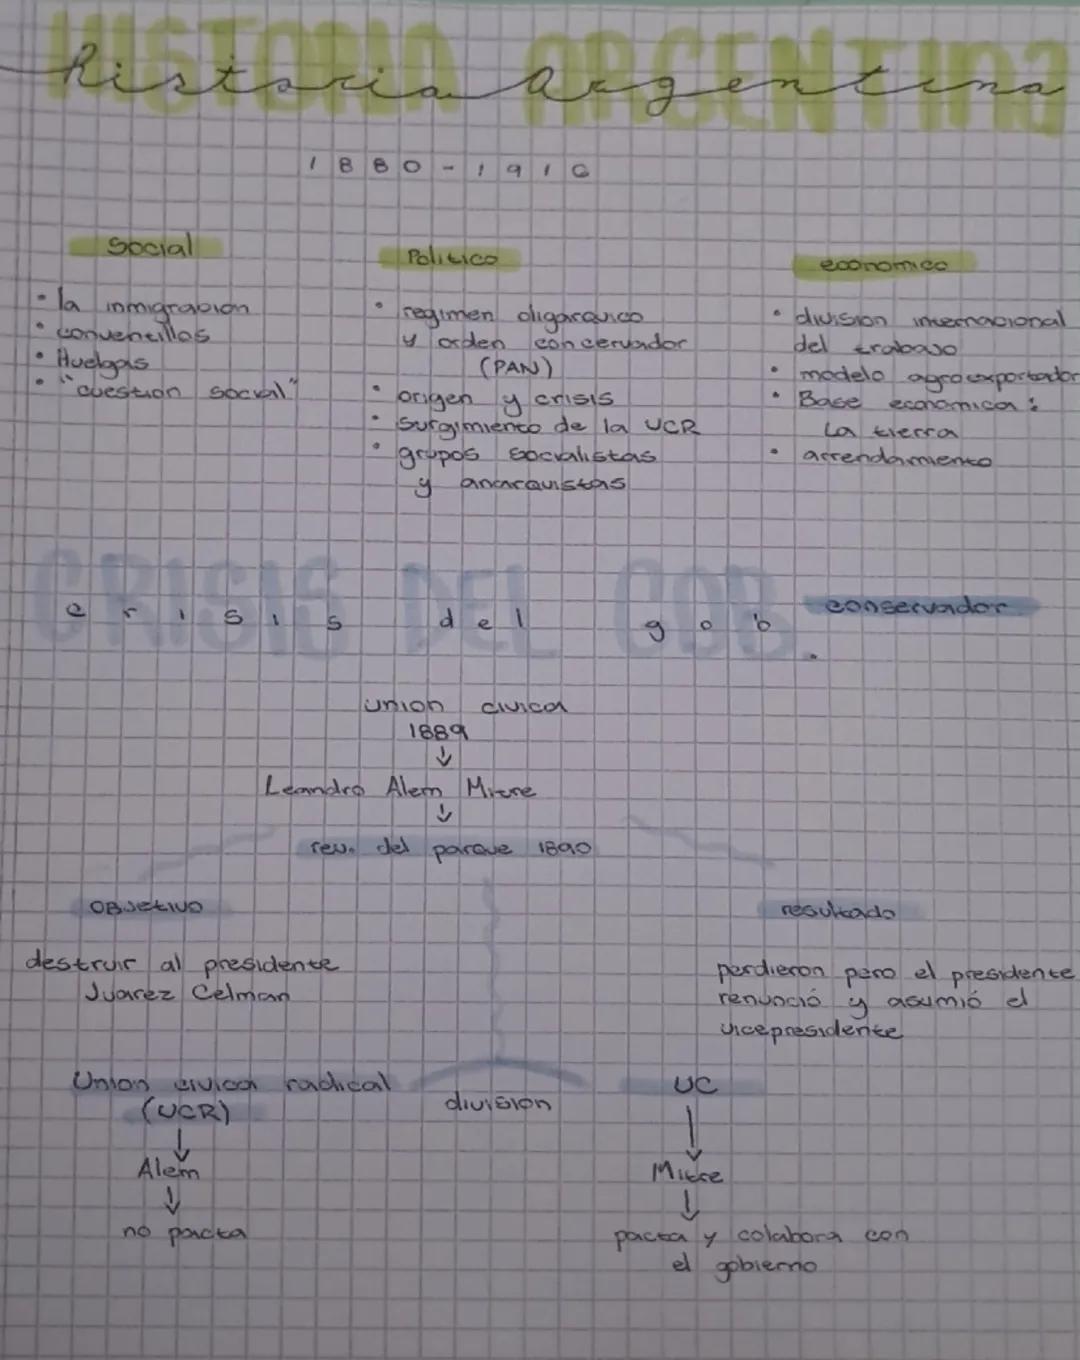 HISTORIA ARGENTINA
historia argentina
1880-1916
social
• la inmigracion
• conventillos
• Huelgas
• "cuestion social"
Politico
• regimen oligarquico
y orden concervador
(PAN)
• origen y crisis
• surgimiento de la UCR
• grupos socialistas
y anarquistas
economico
• division internacional
del trabajo
• modelo agroexportador
• Base economica:
La tierra
• arrendamiento
CRISIS DEL GOB.
crisis del gob. conservador
union civica
1889
↓
Leandro Alem Mitre
↓
rev. del parque 1890
OBJetivo
destruir al presidente
Juarez Celman
resultado
perdieron pero el presidente
renunció y asumió el
vicepresidente
Union civica radical
(UCR)
↓
Alem
↓
no pacta
division
UC
↓
Mitre
↓
pacta y colabora con
el gobierno